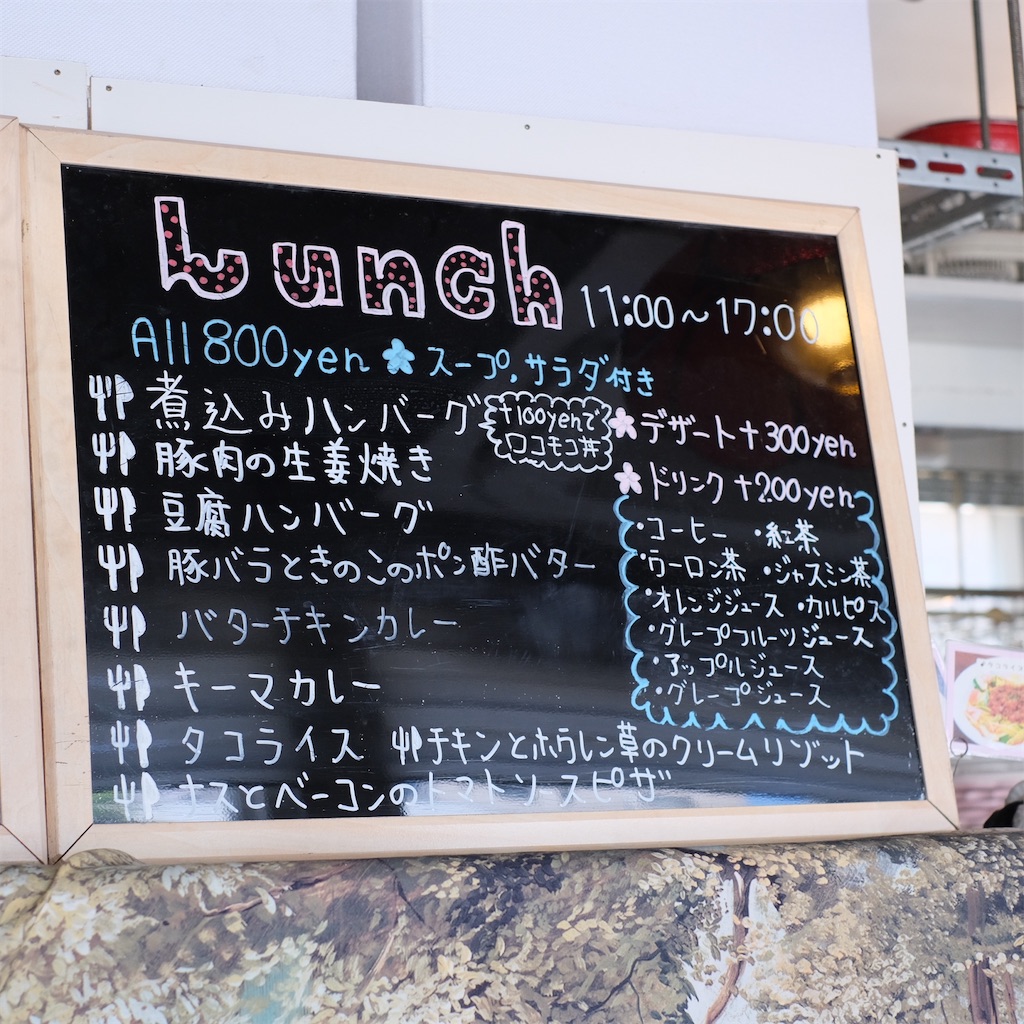 Lunch 11:00～17:00
All 800yen スープ,サラダ付き
煮込みハンバーグ
+100yenで
ロコモコ丼
豚肉の生姜焼き
豆腐ハンバーグ
豚バラときのこのポン酢バター
バターチキンカレー
キーマカレー
タコライス
チキンとホウレン草のクリームリゾット
ナスとベーコンのトマトソースピザ
デザート+300yen
ドリンク+200yen
・コーヒー ・紅茶
・ウーロン茶 ・ジャスミン茶
・オレンジジュース ・カルピス
・グレープフルーツジュース
・アップルジュース
・グレープジュース